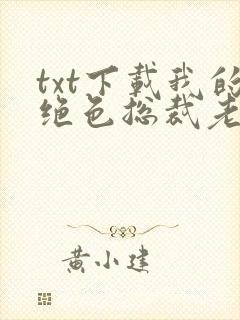 txt下载我的
绝色总裁老
黄小建